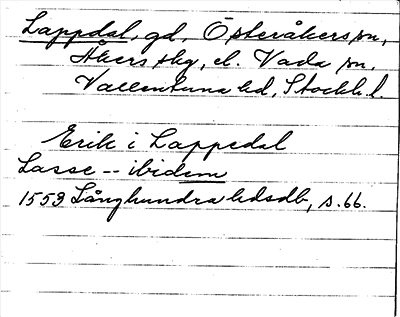 Lappdal, gd, Österåkers sn,
Åkers skg, el. Vada sn,
Vallentuna hd, Stockh. l.
Erik i Lappedal
Lasse -- ibidem
1553 Långhundra hdsdb, s. 66.